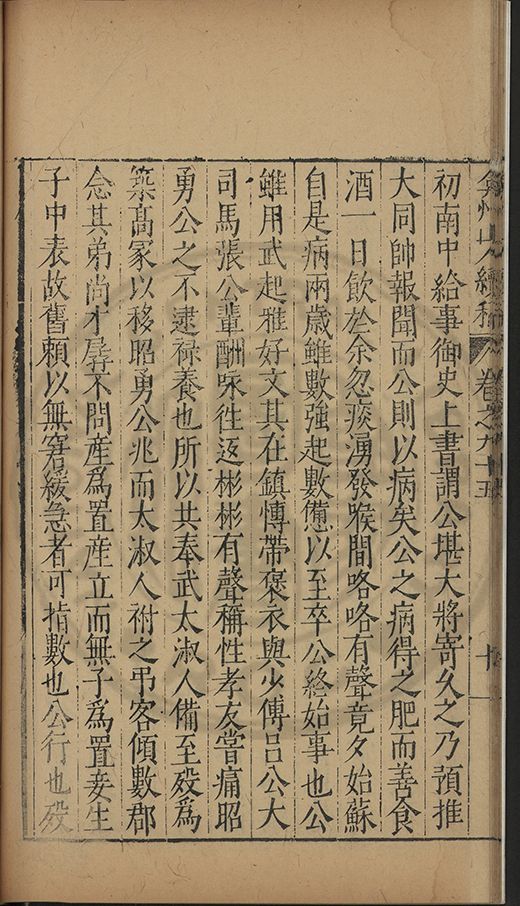 弇州山人續稿 卷之九十五 十
初南中給事御史上書謂公堪大將寄久之乃預推
大同帥報聞而公則以病矣公之病得之肥而善食
酒一日飲於余忽痰湧發喉間咯咯有聲竟夕始蘇
自是病兩歲雖數強起數憊以至卒公終始事也公
雖用武起雅好文其在鎮愽帶褒衣與少傅吕公大
司馬張公輩酬咏徃返彬彬有聲稱性孝友嘗痛昭
勇公之不逮禄養也所以共奉武太淑人備至殁爲
築高冢以移昭勇公兆而太淑人祔之弔客傾數郡
念其弟尚才孱不問産爲置産立而無子爲置妾生
子中表故舊頼以無窘緩急者可指數也公行也殁